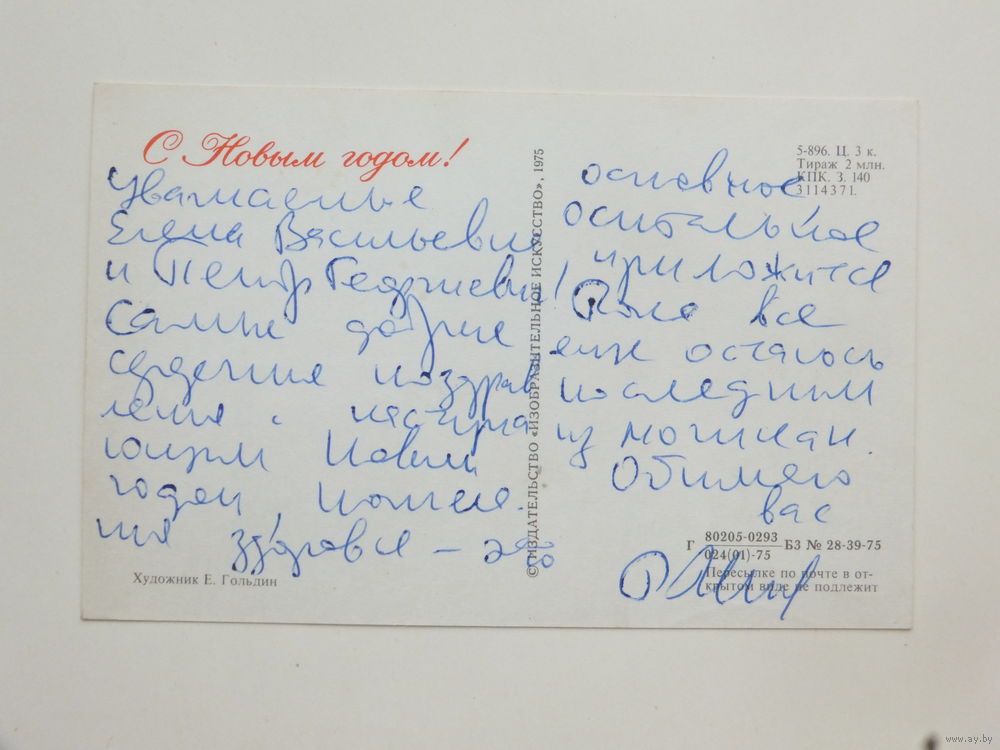 С Новым годом!
Уважаемые
Елена Васильевна
и Петр Георгиевич!
Самые добрые
сердечные поздрав
ления с наступа
ющим Новым
годом, пожела
ния здоровья – это
Художник Е. Гольдин
© «ИЗДАТЕЛЬСТВО «ИЗОБРАЗИТЕЛЬНОЕ ИСКУССТВО», 1975
5-896. Ц. 3 к.
Тираж 2 млн.
КПК. З. 140
3114371.
основное
остальное
приложится
Пока все
еще остаюсь
последним
из могикан.
Обнимаю
вас
Г 80205-0293 БЗ № 28-39-75
024(01)-75
Пересылке по почте в от-
крытом виде не подлежит
www.ay.by